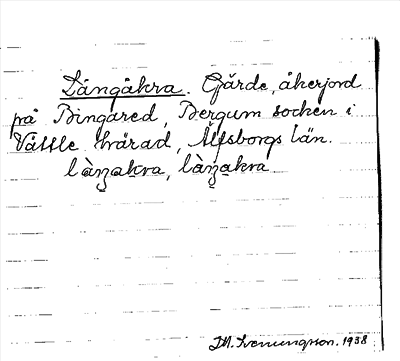 Långåkra. Gärde, åkerjord
på Bingared, Bergum socken i
Vättle härad, Älfsborgs län.
làŋakra, làŋakra
J. M. Svenungsson. 1938